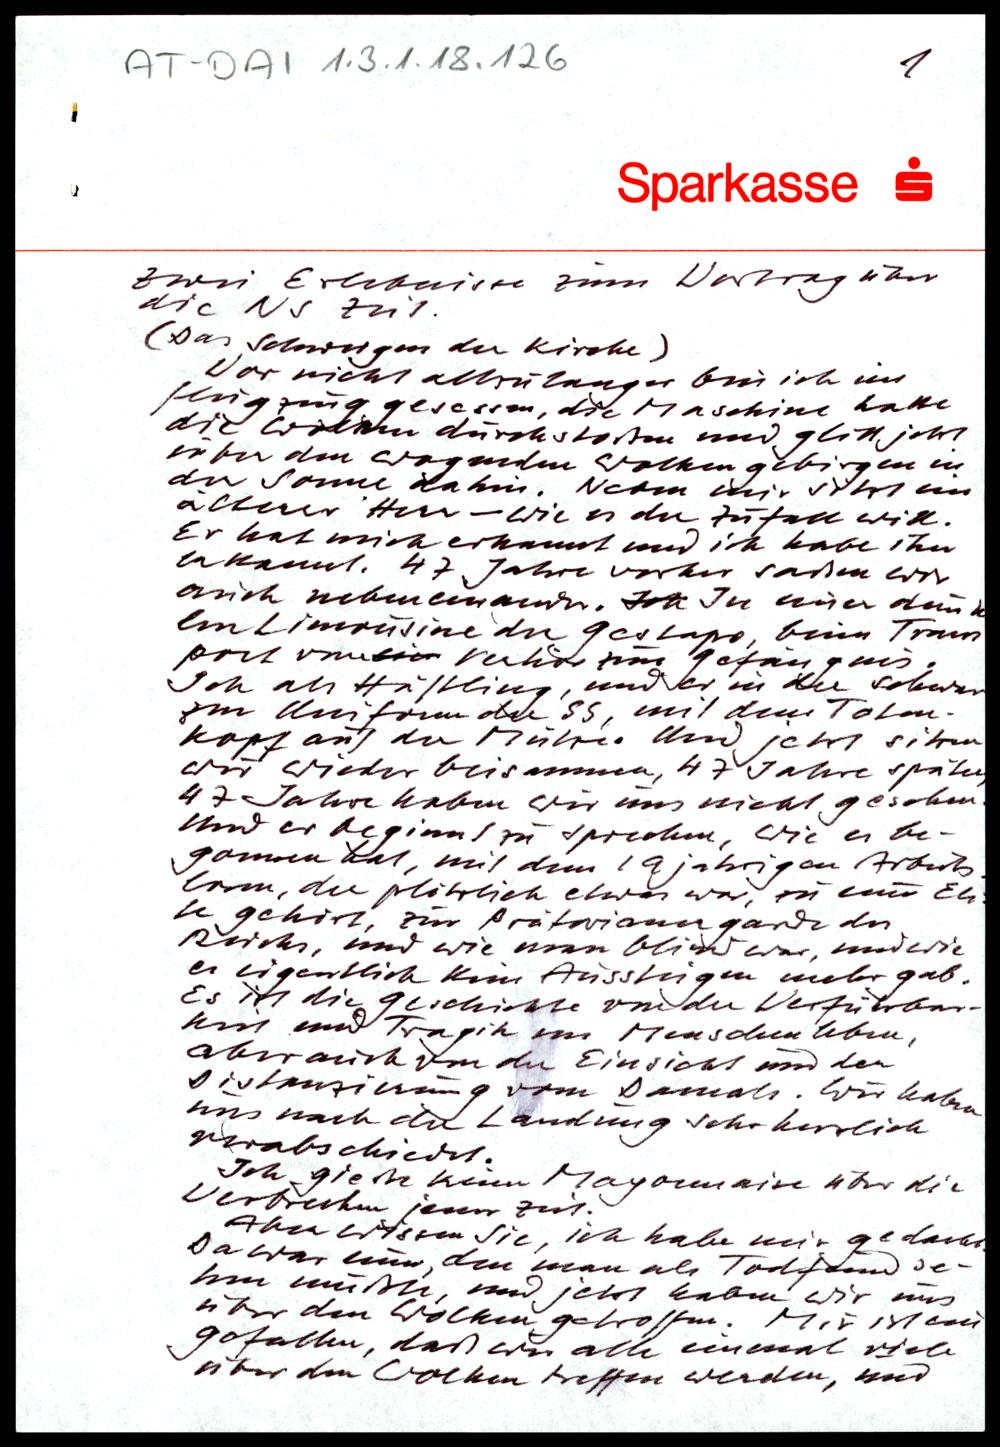 AT-DAI 1.3.1.18.126
1
Sparkasse
Zwei Erlebnisse zum Vortrag über
die NS Zeit.
(Das Schweigen der Kirche)
Vor nicht allzulanger bin ich im
Flugzeug gesessen, die Maschine hatte
die Wolken durchstoßen und glitt jetzt
über den wogenden Wolkengebirgen in
der Sonne dahin. Neben mir sitzt ein
älterer Herr – wie es der Zufall will.
Er hat mich erkannt und ich habe ihn
erkannt. 47 Jahre vorher saßen wir
auch nebeneinander. Ich In einer dunk
len Limousine der Gestapo, beim Trans
port vom Verhör zum Gefängnis.
Ich als Häftling, und er in der schwar
zen Uniform der SS, mit dem Toten-
kopf auf der Mütze. Und jetzt sitzen
wir wieder beisammen, 47 Jahre später,
47 Jahre haben wir uns nicht gesehen.
Und er beginnt zu sprechen, wie es be-
gonnen hat, mit dem 19jährigen Arbeits-
losen, der plötzlich etwas war, zu einer Eli-
te gehört, zur Prätorianergarde des
Reichs, und wie man blind war, und wie
es eigentlich kein Aussteigen mehr gab.
Es ist die Geschichte von der Verführbar-
keit und Tragik im Menschenleben,
aber auch von der Einsicht und der
Distanzierung vom Damals. Wir haben
uns nach der Landung sehr herzlich
verabschiedet.
Ich gieße keine Mayonnaise über die
Verbrechen jener Zeit.
Aber wissen Sie, ich habe mir gedacht:
Da war einer, den man als Todfeind se-
hen mußte, und jetzt haben wir uns
über den Wolken getroffen. Mir ist ein
gefallen, daß wir alle einmal viele
über den Wolken treffen werden, und